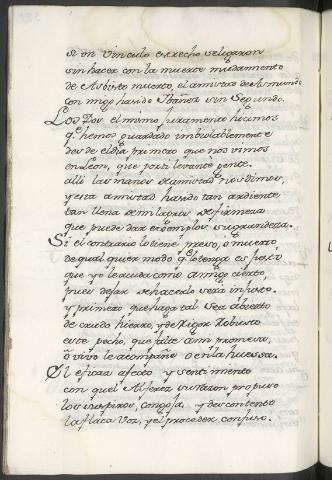 si en vinculo estrecho se ligaron
sin hacer con la muerte mudamiento
muerto el amistad
con migo havido Ibañez sin segundo.
Los Dos el mismo juramento hicimos
q.e hemos guardado imbiolablemente
des de el dia primero que nos vimos
en Leon, que por ti levanto gente.
alli las manos de amistad nos dimos,
y esta amistad havido tan ardiente
tan llena de milagros de firmeza
que puede dar exemplos su grandeza.
Si el contrario lo tiene preso, o muerto
de qual quier modo q.e lo tenga es justo
que yo le acuda como amigo cierto,
pues dejar de hacerlo sera injusto.
y primero que haga tal sea abierto
de crudo hierro, y de vigor robusto
este pecho, que falte a mi promesa,
o vivo le acompañe o en la huessa.
El eficaz afecto y sentimiento
con que el Alferez su razon propuso
los suspiros, congoja, y descontento
la flaca voz, y el proceder confuso.